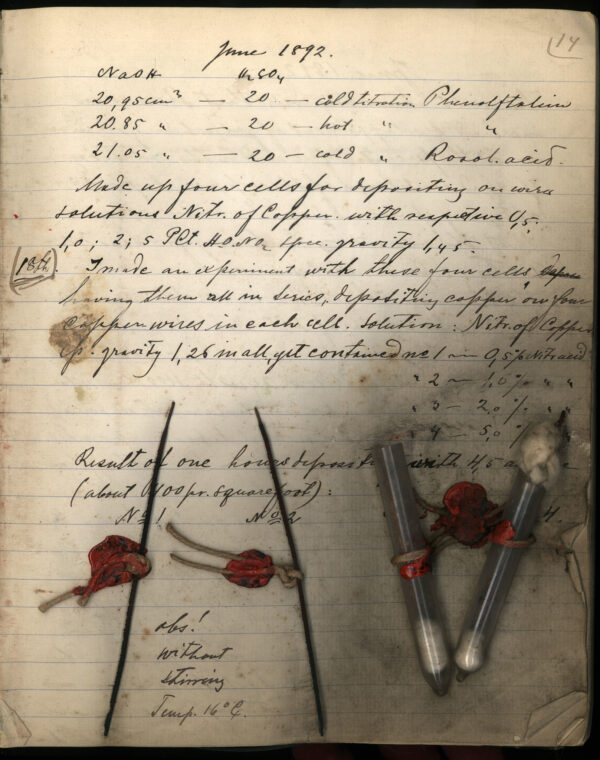 14
June 1892.
NaOH H₂SO₄
20,95 cm³ — 20 — cold titration Phenolftalein
20.85 " — 20 — hot " "
21.05 " — 20 — cold " Rosol. acid.
Made up four cells for depositing on wire
solutions Nitr. of Copper. with respective 0,5,
1,0; 2; 5 PCt. HONO₂ spec. gravity 1,45.
18th. I made an experiment with these four cells
having them all in series, depositing copper on four
Copper wires in each cell. Solution: Nitr. of Copper
sp. gravity 1,26 in all, yet contained No 1 — 0,5% Nitr acid
" 2 — 1,0% " "
" 3 — 2,0% " "
" 4 — 5,0% " "
Result of one hours with 4,5
(about 400 pr. square foot):
No 1 No 2 4.
obs!
without
stirring
Temp. 16° C.